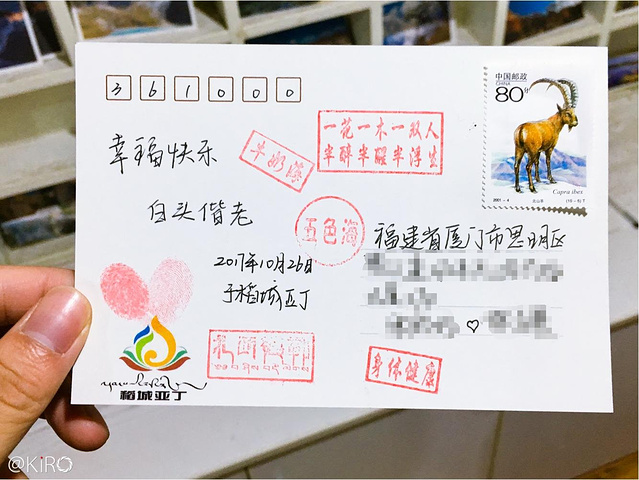 361000
中国邮政
CHINA
80分
Capra ibex
2001-4
北山羊
(10-6)T
一花一木一双人
半醉半醒半浮生
牛奶海
幸福快乐
白头偕老
五色海
福建省厦门市思明区
2017年10月26日
于稻城亚丁
♡
身体健康
稻城亚丁
@KiRO